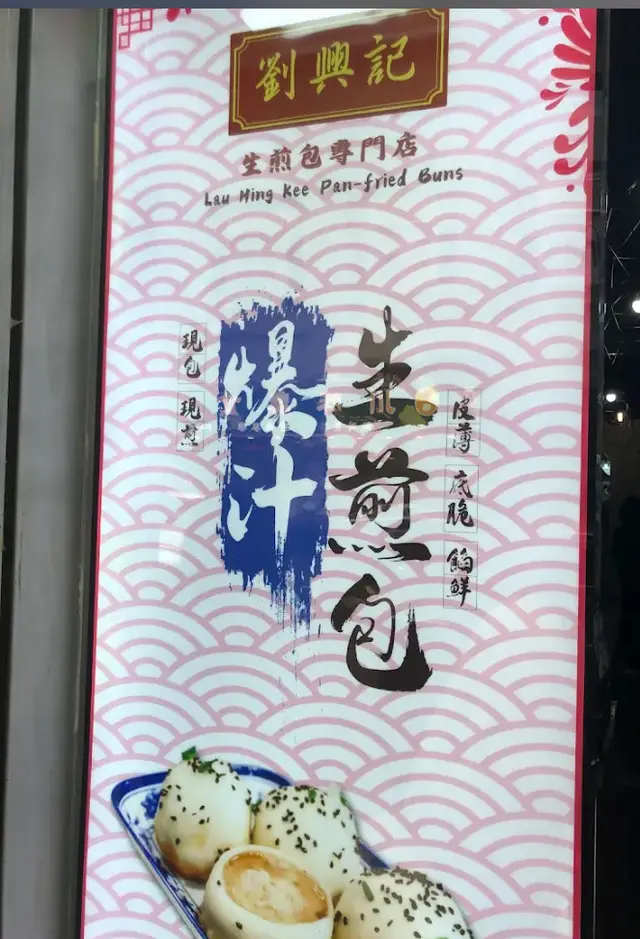 劉興記
生煎包專門店
Lau Hing Kee Pan-fried Buns
皮薄 底脆 餡鮮
生煎包
爆汁
現包 現煎